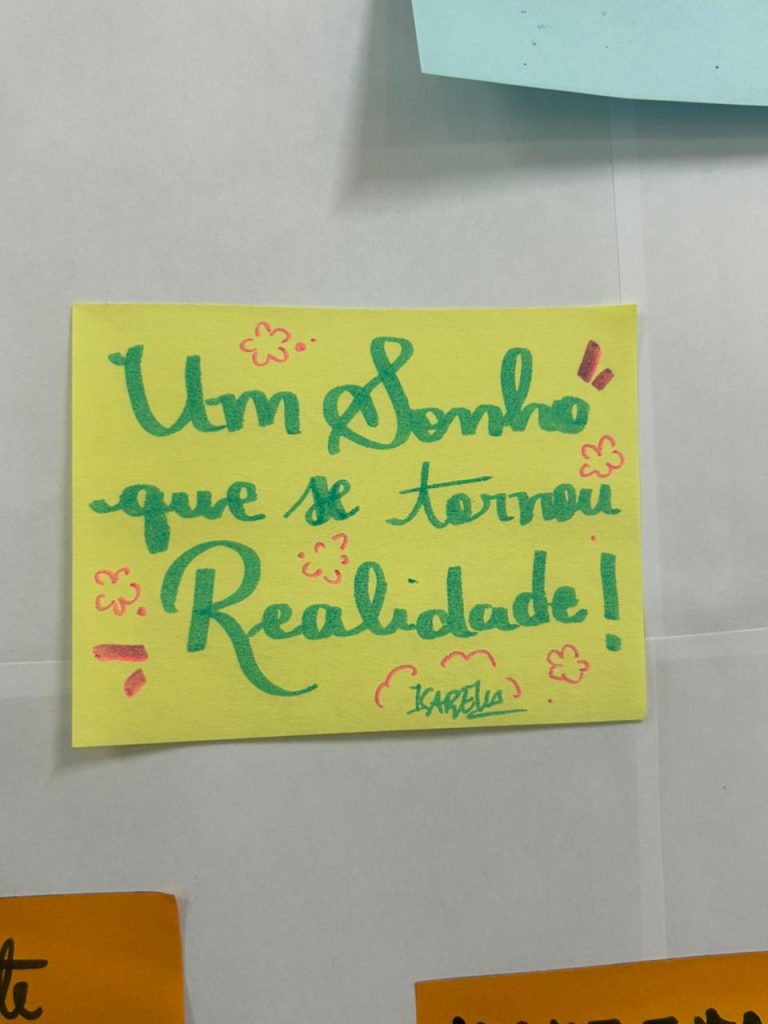 Um Sonho
que se tornou
Realidade!
te